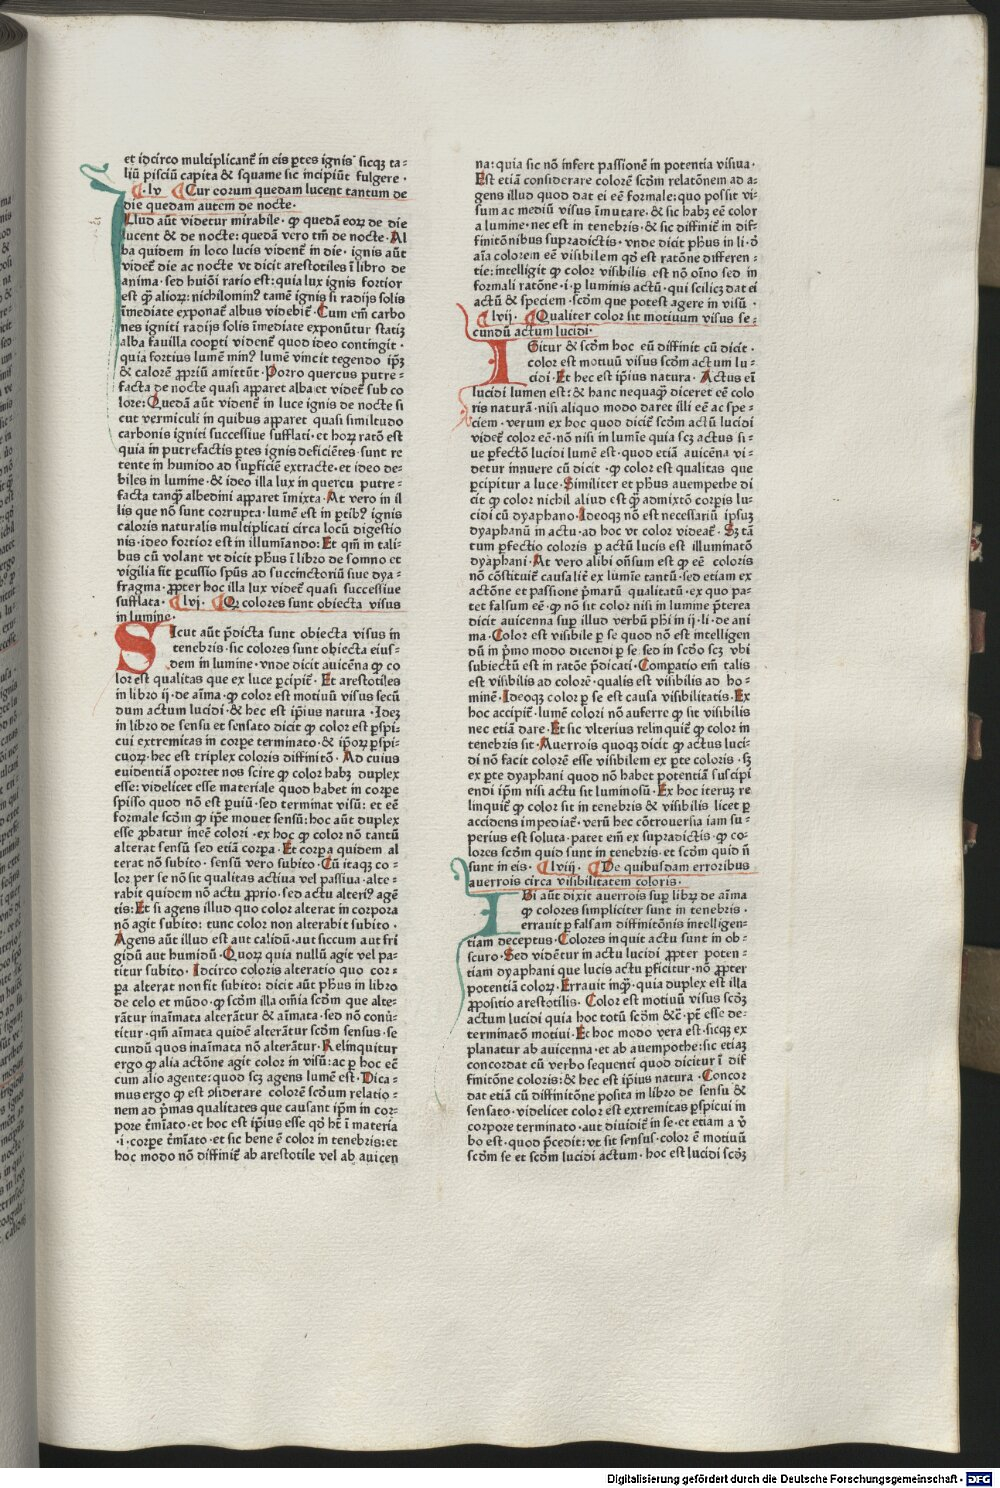 et idcirco multiplicant̄ in eis ꝑtes ignis· sicqꝫ ta=
liū pisciū capita & squame sic incipiūt fulgere·
·lv· Cur eorum quedam lucent tantum de
die quedam autem de nocte·
Llud aūt videtur mirabile· ꝙ quedā eoꝝ de die
lucent & de nocte: quedā vero tm̄ de nocte· Al
ba quidem in loco lucis vident̄ in die· ignis aūt
videt̄ die ac nocte vt dicit arestotiles ī libro de
anima· sed huiōi ratio est: quia lux ignis fortior
est ꝙ̄ alioꝝ: nichilominꝰ tamē ignis si radijs solis
īmediate exponat̄ albus videbit̄· Cum em̄ carbo
nes igniti radijs solis īmediate exponūtur statiꝫ
alba fauilla cooꝑti vident̄ quod ideo contingit·
quia fortius lumē minꝰ lumē vincit tegendo ip̄ꝫ
& calorē ꝓpriū amittūt· Porro quercus putre=
facta de nocte quasi apparet alba et videt̄ sub co
lore: Quedā aūt vident̄ in luce ignis de nocte si
cut vermiculi in quibus apparet quasi similitudo
carbonis igniti successiue sufflati· et hoꝝ ratō est
quia in putrefactis ꝑtes ignis deficiētes· sunt re
tente in humido ad suꝑficiē extracte· et ideo de=
biles in lumine· & ideo illa lux in quercu putre=
facta tanꝙ̄ albedini apparet īmixta· At vero in il
lis que nō sunt corrupta· lumē est in ꝑtibꝰ ignis
caloris naturalis multiplicati circa locū digestio
nis· ideo fortior est in illumīando: Et qm̄ in tali=
bus cū volant vt dicit ph̄us ī libro de somno et
vigilia fit ꝑcussio sp̄us ad succinctoriū siue dya=
fragma· ꝓpter hoc illa lux videt̄ quasi successiue
sufflata· lvj· Qꝫ colores sunt obiecta visus
in lumine·
SIcut aūt p̄dicta sunt obiecta visus in
tenebris· sic colores sunt obiecta eius=
dem in lumine· vnde dicit auicēna ꝙ co
lor est qualitas que ex luce ꝑcipit̄· Et arestotiles
in libro ij· de aīma· ꝙ color est motiuū visus secū
dum actum lucidi· & hec est ip̄ius natura· Ideꝫ
in libro de sensu et sensato dicit ꝙ color est ꝑspi=
cui extremitas in corꝑe terminato· & ip̄oꝝ ꝑspi=
cuoꝝ· hec est triplex coloris diffinitō· Ad cuius
euidentiā oportet nos scire ꝙ color habꝫ duplex
esse: videlicet esse materiale quod habet in corꝑe
spisso quod nō est ꝑuiū· sed terminat visū: et eē
formale scd̄m ꝙ ip̄e mouet sensū: hoc aūt duplex
esse ꝓbatur inee̅ colori· ex hoc ꝙ color nō tantū
alterat sensū sed etiā corꝑa· Et corꝑa quidem al
terat nō subito· sensū vero subito· Cū itaqꝫ co=
lor per se nō sit qualitas actiua vel passiua· alte=
rabit quidem nō actu ꝓprio· sed actu alteriꝰ agē
tis: Et si agens illud quo color alterat in corpora
nō agit subito: tunc color non alterabit subito·
Agens aūt illud est aut calidū· aut siccum aut fri
gidū aut humidū· Quoꝝ quia nullū agit vel pa=
titur subito· Idcirco coloris alteratio quo cor=
pa alterat non fit subito: dicit aūt ph̄us in libro
de celo et mūdo· ꝙ scd̄m illa om̄ia scd̄m que alte=
rātur inaīmata alterātur & aīmata· sed nō conū=
titur· qm̄ aīmata quidē alterātur scd̄m sensus· se
cundū quos inaīmata nō alterātur· Relinquitur
ergo ꝙ alia actōne agit color in visū: ac ꝑ hoc eē̄
cum alio agente: quod scꝫ agens lumē est· Dica=
mus ergo ꝙ est ꝯsiderare colorē scd̄um relatio=
nem ad p̄mas qualitates que causant ip̄m in cor=
pore t̄miato· et hoc ist ip̄ius esse qd̄ ht̄ ī materia
·i· corꝑe t̄miato· et sic bene ē color in tenebris: et
hoc modo nō diffinit̄ ab arestotile vel ab auicen
na: quia sic nō infert passionē in potentia visiua·
Est etiā considerare colorē scd̄m relatōnem ad a=
gens illud quod dat ei eē formale: quo possit vi=
sum ac mediū visus īmutare· & sic habꝫ eē color
a lumine· nec est in tenebris· & sic diffinit̄ in dif=
finitōnibus supradictis· vnde dicit ph̄us in li· d̄
aīa colorem eē visibilem qd̄ est ratōne differen=
tie: intelligit ꝙ color visibilis est nō oīno sed in
formali ratōne· i· ꝑ luminis actū· qui scilicꝫ dat ei
actū & speciem· scd̄m que potest agere in visū·
lvij· Qualiter color sit motiuum visus se=
cundū actum lucidi·
IGitur & scd̄m hoc eū diffinit cū dicit·
color est motiuū visus scd̄m actum lu=
cidi· Et hec est ip̄ius natura· Actus ei̅
lucidi lumen est: & hanc nequaꝙ̄ diceret eē colo
ris naturā· nisi aliquo modo daret illi eē ac spe=
ciem· verum ex hoc quod dicit̄ scd̄m actū lucidi
videt̄ color eē· nō nisi in lumīe quia scꝫ actus si=
ue ꝑfectō lucidi lumē est· quod etiā auicēna vi=
detur innuere cū dicit· ꝙ color est qualitas que
ꝑcipitur a luce· Similiter et ph̄us auempethe di
cit ꝙ color nichil aliud est ꝙ̄ admixtō corꝑis lu=
cidi cū dyaphano· Ideoqꝫ nō est necessariū ipsuꝫ
dyaphanū in actu· ad hoc vt color videat̄· Sꝫ tā
tum ꝑfectio coloris ꝑ actū lucis est illuminatō
dyaphani· At vero alibi on̄sum est ꝙ eē coloris
nō cōstituit̄ causalit̄ ex lumīe tantū· sed etiam ex
actōne et passione p̄marū qualitatū· ex quo pa=
tet falsum eē· ꝙ nō sit color nisi in lumine p̄terea
dicit auicenna suꝑ illud verbū ph̄i in ij· li· de ani
ma· Color est visibile ꝑ se quod nō est intelligen
dū in p̄mo modo dicendi ꝑ se sed in scd̄o scꝫ vbi
subiectū est in ratōe p̄dicati· Compatio em̄ talis
est visibilis ad colorē· qualis est visibilis ad ho=
minē· Ideoqꝫ color ꝑ se est causa visibilitatis· Ex
hoc accipit̄· lumē colori nō auferre ꝙ sit visibilis
nec etiā dare· Et sic vlterius relinquit̄ ꝙ color in
tenebris sit· Auerrois quoqꝫ dicit ꝙ actus luci=
di nō facit colorē esse visibilem ex ꝑte coloris· sꝫ
ex ꝑte dyaphani quod nō habet potentiā suscipi
endi ip̄m nisi actu sit luminosū· Ex hoc iteruꝫ re
linquit̄ ꝙ color sit in tenebris & visibilis licet ꝑ
accidens impediat̄· verū hec cōtrouersia iam su=
perius est soluta· patet em̄ ex supradictis· ꝙ co=
lores scd̄m quid sunt in tenebris· et scd̄m quid n̄
sunt in eis· lviij· De quibusdam erroribus
auerrois circa visibilitatem coloris·
IBi aūt dixit auerrois suꝑ libꝝ de aīma
ꝙ colores simpliciter sunt in tenebris·
errauit ꝑ falsam diffinitōnis intelligen=
tiam deceptus· Colores inquit actu sunt in ob=
scuro· Sed vidētur in actu lucidi ꝓpter poten=
tiam dyaphani que lucis actu ꝑficitur· nō ꝓpter
potentiā coloꝝ· Errauit inꝙ̄· quia duplex est illa
ꝓpositio arestotilis· Color est motiuū visus scd̄ꝫ
actum lucidi quia hoc totū scd̄m &c̄· pt̄ esse de=
terminatō motiui· Et hoc modo vera est· sicqꝫ ex
planatur ab auicenna· et ab auempothe: sic etiaꝫ
concordat cū verbo sequenti quod dicitur ī dif
finitōne coloris: & hec est ip̄ius natura· Concor
dat etiā cū diffinitōne posita in libro de sensu &
sensato· videlicet color est extremitas ꝑspicui in
corpore terminato· aut diuidit̄ in se· et etiam a v̄
bo est· quod p̄cedit: vt sit sensus· color ē motiuū
scd̄m se et scd̄m lucidi actum· hoc est lucidi scd̄ꝫ
Digitalisierung gefördert durch die Deutsche Forschungsgemeinschaft - DFG